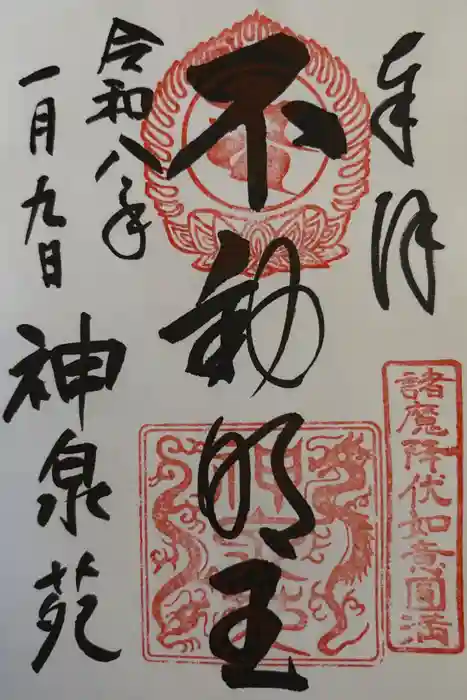 奉拝
諸魔降伏如意圓満
不動明王
神泉苑
令和八年
一月九日
神泉苑